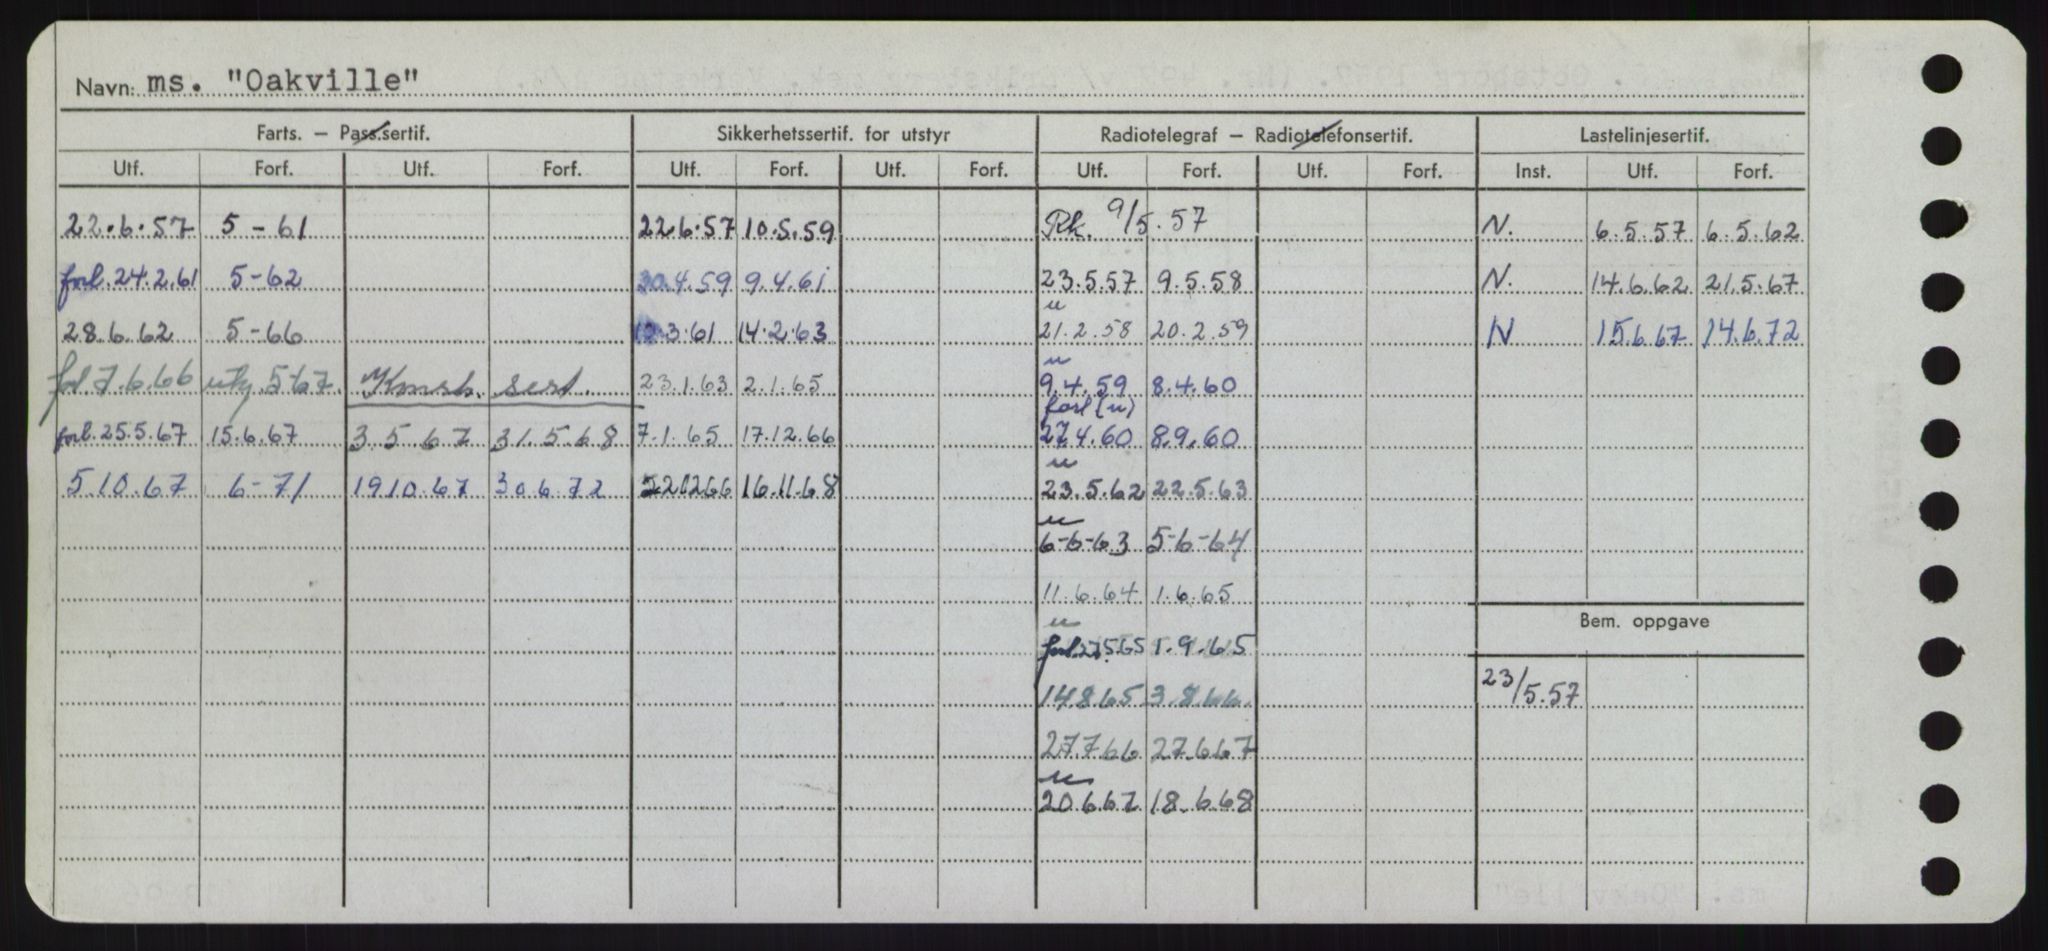 Navn: ms. "Oakville"
Farts. — Pass.sertif. Sikkerhetssertif. for utstyr Radiotelegraf — Radiotelefonsertif. Lastelinjesertif.
Utf. Forf. Utf. Forf. Utf. Forf. Utf. Forf. Utf. Forf. Utf. Forf. Inst. Utf. Forf.
22.6.57 5-61 22.6.57 10.5.59 Rk. 9/5.57 N. 6.5.57 6.5.62
forl. 24.2.61 5-62 30.4.59 9.4.61 23.5.57 9.5.58 N. 14.6.62 21.5.67
u
28.6.62 5-66 12.3.61 14.2.63 21.2.58 20.2.59 N 15.6.67 14.6.72
u
forl 7.6.66 utg. 5-67. Kmsk. sert. 23.1.63 2.1.65 9.4.59 8.4.60
forl (u)
forl. 25.5.67 15.6.67 3.5.67 31.5.68 7.1.65 17.12.66 27.4.60 8.9.60
u
5.10.67 6-71 19.10.67 30.6.72 22.12.66 16.11.68 23.5.62 22.5.63
u
6-6-63 5-6-64
11.6.64 1.6.65
u
Bem. oppgave
forl. 27.5.65 1.9.65
23/5.57
14.8.65 3.8.66.
27.7.66 27.6.67
u
20.6.67 18.6.68